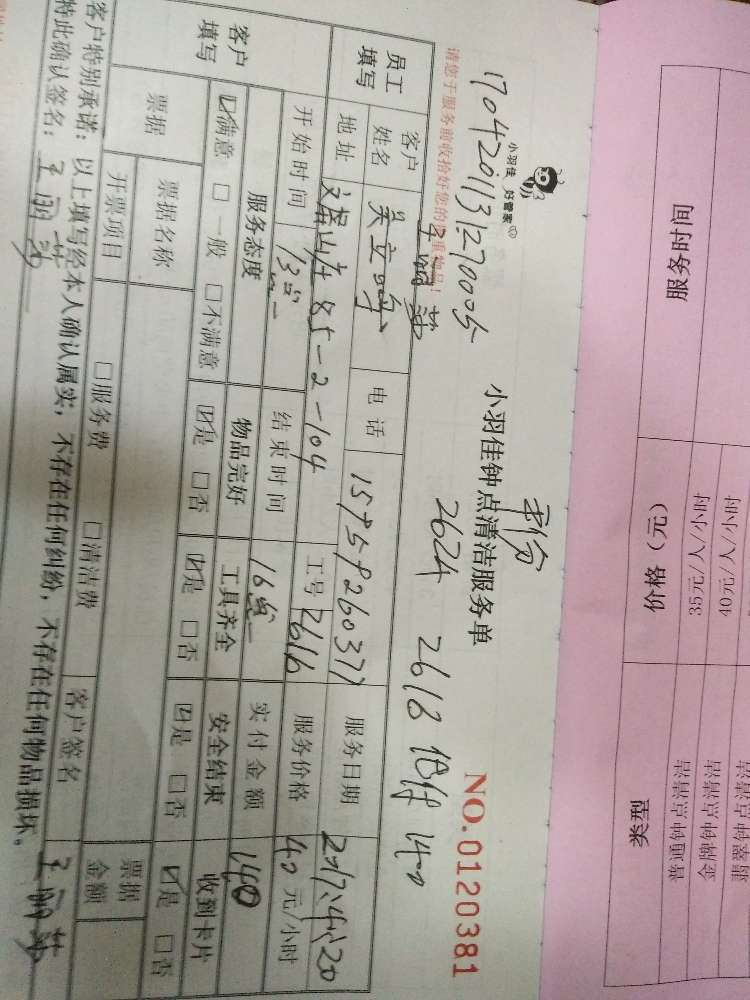 服务时间
价格（元）
类型
35元/人/小时
普通钟点清洁
40元/人/小时
金牌钟点清洁
翡翠钟点清洁
小羽佳 好管家
小羽佳钟点清洁服务单
NO.0120381
1704201131270005
2624 2618 140
请您于服务前收拾好您的贵重物品！
王丽琴
员工填写
客户姓名
电话
15759260377
服务日期
2017.4.20
地址
85-2-104
工号
2616
服务价格
40元/小时
客户填写
开始时间
13点
结束时间
16点
实付金额
140
服务态度
物品完好
工具齐全
安全结束
收到卡片
☑满意 □一般 □不满意
☑是 □否
☑是 □否
☑是 □否
☑是 □否
票据
票据名称
票据金额
开票项目
□服务费 □清洁费
客户签名
王丽琴
客户特别承诺：以上填写经本人确认属实，不存在任何纠纷，不存在任何物品损坏。
特此确认签名：王丽琴